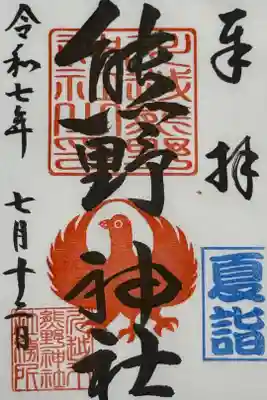 奉拝
熊野神社
夏詣
令和七年 七月十二日
川越市
熊野神社
社務所